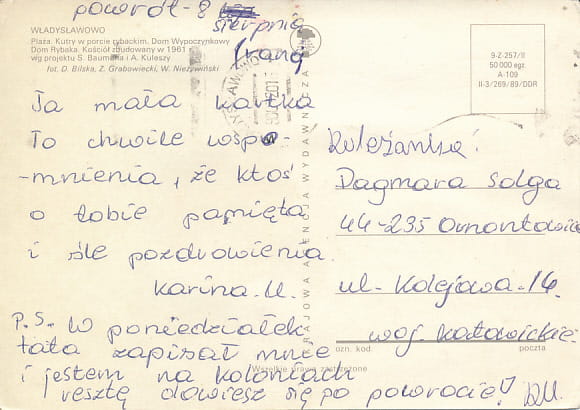 powrót - 8
sierpnia
(rano)
WŁADYSŁAWOWO
Plaża. Kutry w porcie rybackim. Dom Wypoczynkowy
Dom Rybaka. Kościół zbudowany w 1961
wg projektu S. Baumana i A. Kuleszy
fot. D. Bilska, Z. Grabowiecki, W. Nieżywiński
9-Z-257/II
50 000 egz.
A-109
II-3/269/89/DDR
Ta mała kartka
To chwile wspo-
-mnienia, że ktoś
o tobie pamięta
i śle pozdrowienia.
Karina.U.
P.S. W poniedziałek
tata zapisał mnie
i jestem na koloniach
resztę dowiesz się po powrocie! D.U.
KRAJOWA AGENCJA WYDAWNICZA
Koleżanka:
Dagmara Solga
44-235 Ornontowice
ul. Kolejowa. 14.
woj. Katowickie.
ozn. kod. poczta
Wszelkie prawa zastrzeżone